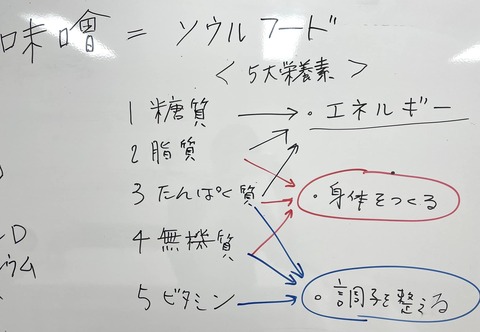 味噌 = ソウルフード
＜5大栄養素＞
1 糖質 → ・エネルギー
2 脂質
3 たんぱく質 ・身体をつくる
4 無機質
5 ビタミン → ・調子を整える
D
ウム